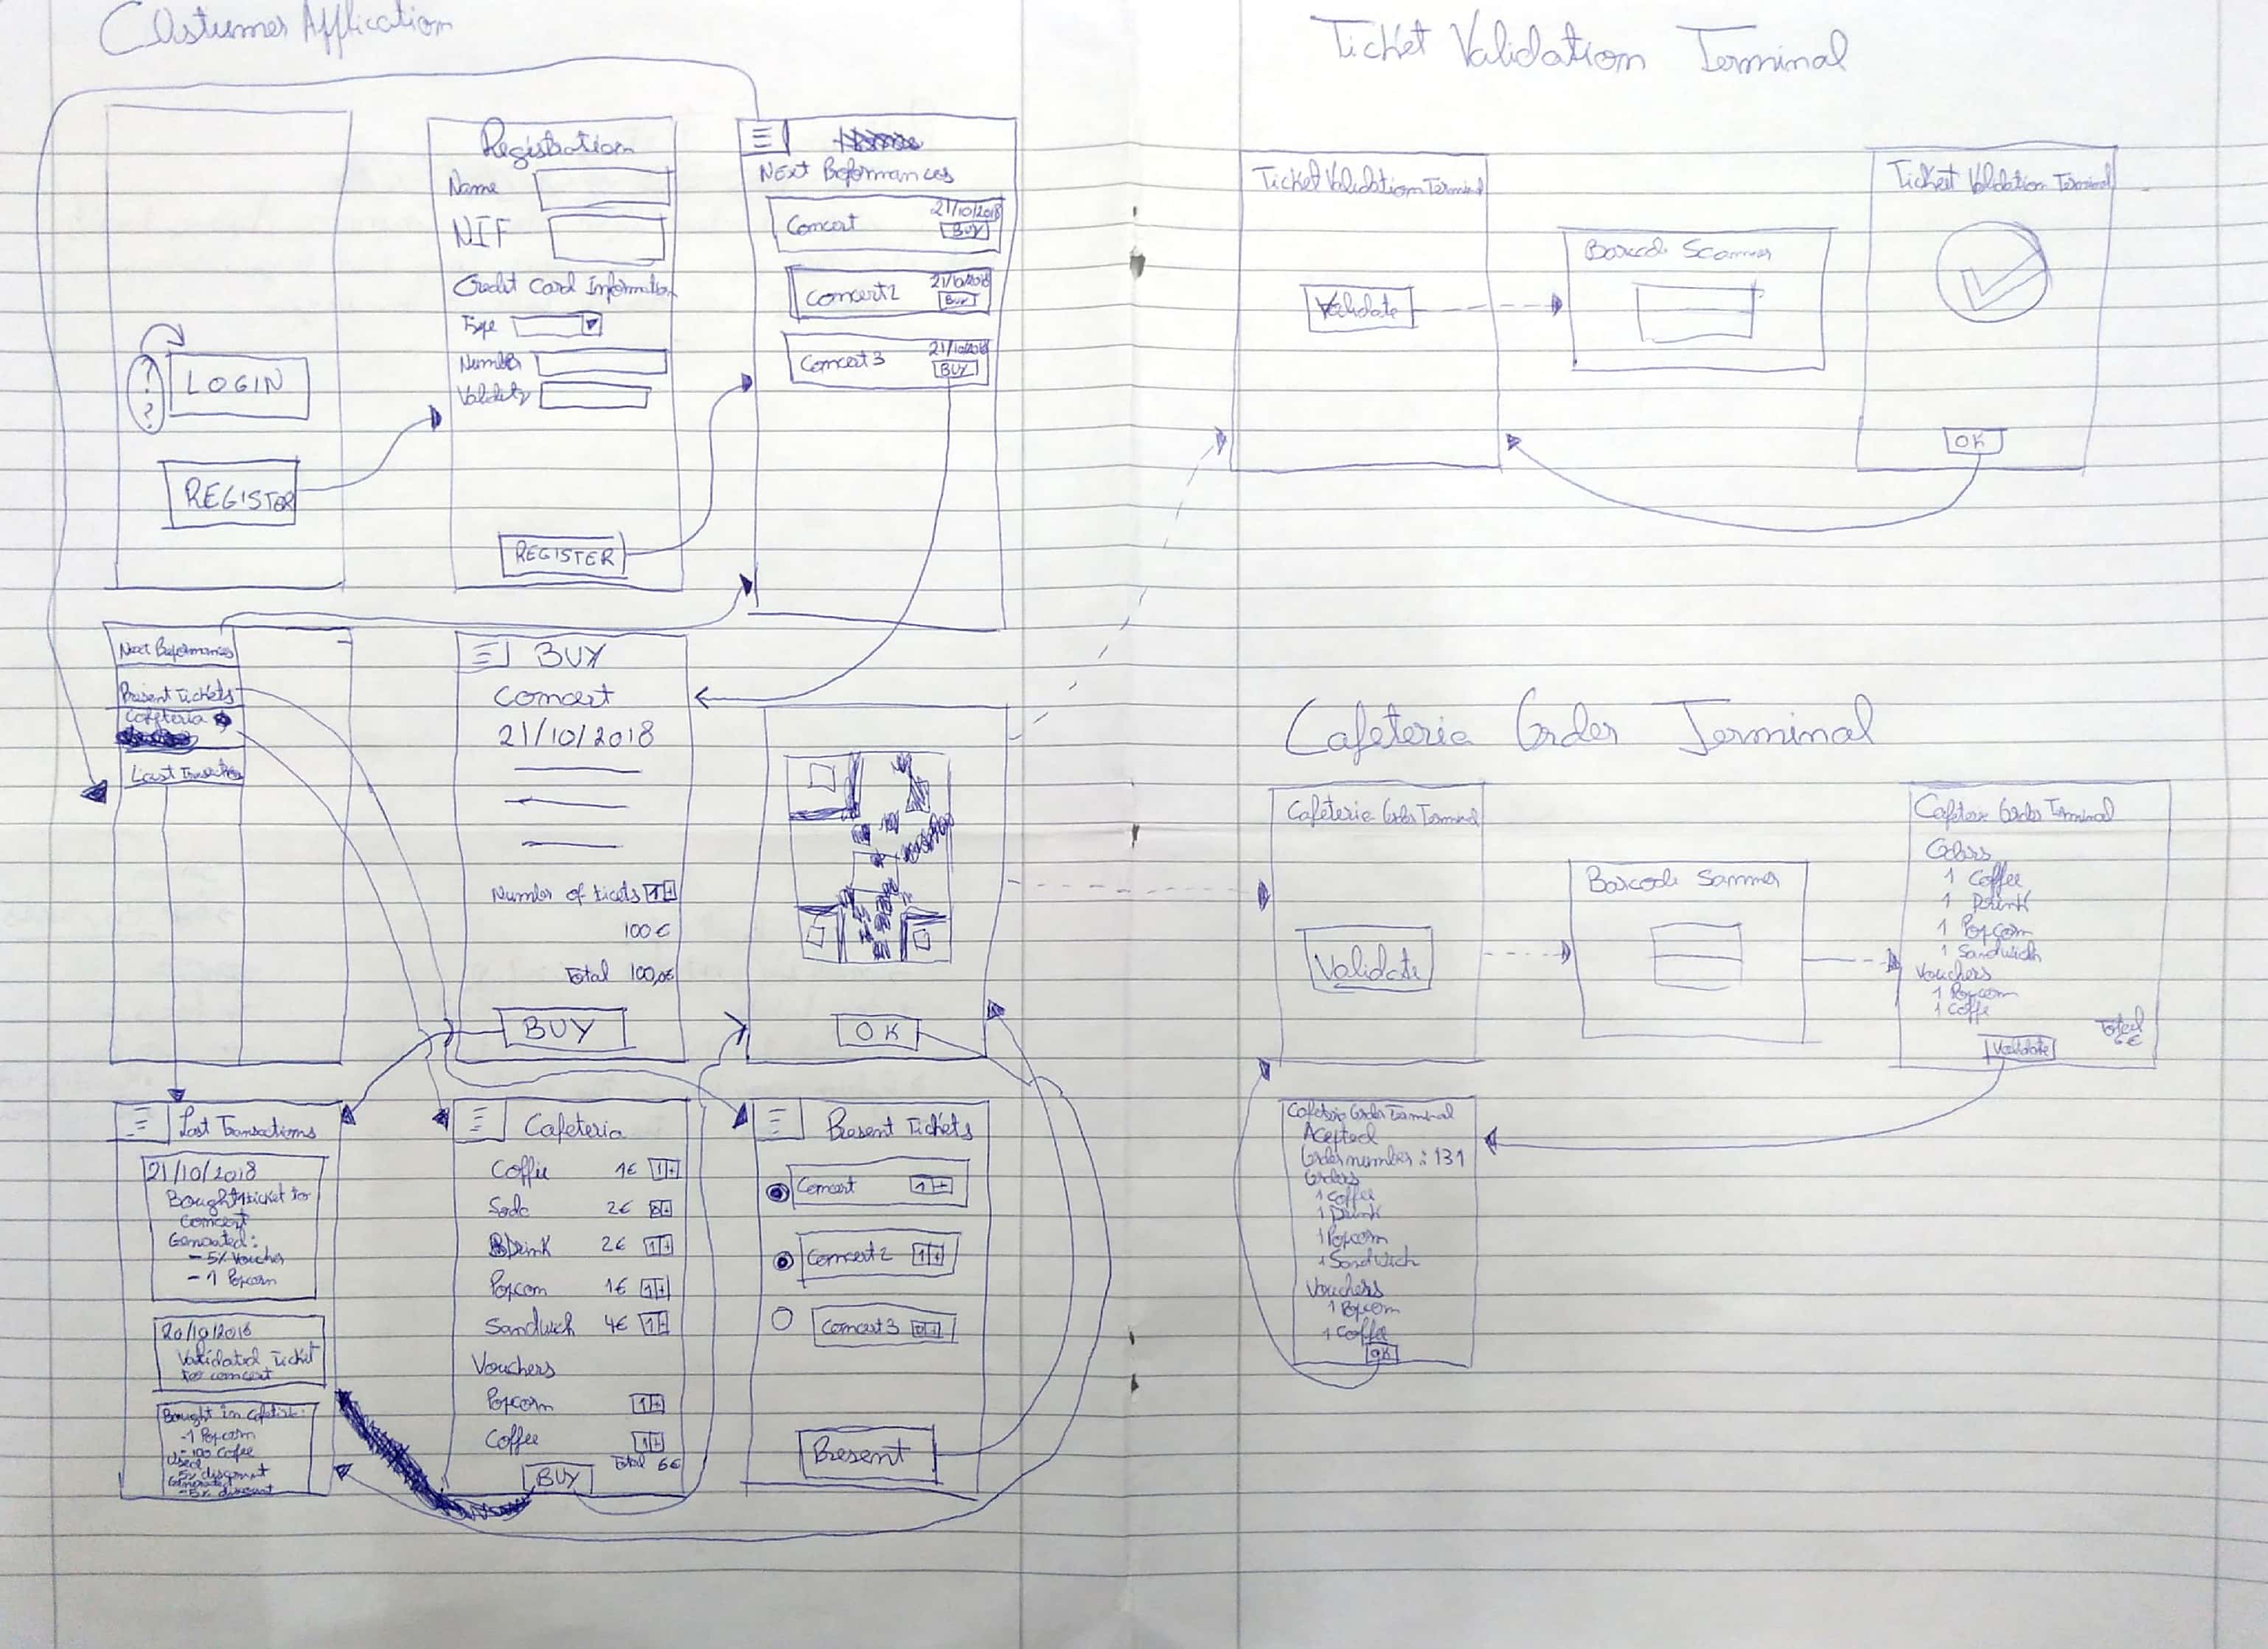 Custumer Application
LOGIN
?
?
?
REGISTER
Registration
Name
NIF
Credit Card Information
Type
Number
Validity
REGISTER
Next Performances
Concert
21/10/2018
BUY
Concert2
21/10/2018
BUY
Concert3
21/10/2018
BUY
Next Performances
Present Tickets
Cafeteria
Last Transactions
BUY
Concert
21/10/2018
Number of tickets 1 +
100€
Total 100,0€
BUY
OK
Last Transactions
21/10/2018
Bought 1 ticket to
Concert
Generated:
- 5% Voucher
- 1 Popcorn
20/10/2018
Validated Ticket
to concert
Bought in cafeteria:
-1 Popcorn
-100 Coffee
Used
5% discount
Generated
-5% discount
Cafeteria
Coffie 1€ 1 +
Soda 2€ 0 +
Drink 2€ 1 +
Popcorn 1€ 1 +
Sandwich 4€ 1 +
Vouchers
Popcorn 1 +
Coffee 1 +
Total 6€
BUY
Present Tickets
Concert 1 +
Concert2 1 +
Concert3 0 +
Present
Ticket Validation Terminal
Ticket Validation Terminal
Validate
Barcode Scanner
Ticket Validation Terminal
OK
Cafeteria Order Terminal
Cafeteria Order Terminal
Validate
Barcode Sanner
Cafeteria Order Terminal
Orders
1 Coffee
1 Drink
1 Popcorn
1 Sandwich
Vouchers
1 Popcorn
1 Coffe
Total
6€
Validate
Cafeteria Order Terminal
Acepted
Order number: 131
Orders
1 Coffee
1 Drink
1 Popcorn
1 Sandwich
Vouchers
1 Popcorn
1 Coffee
OK